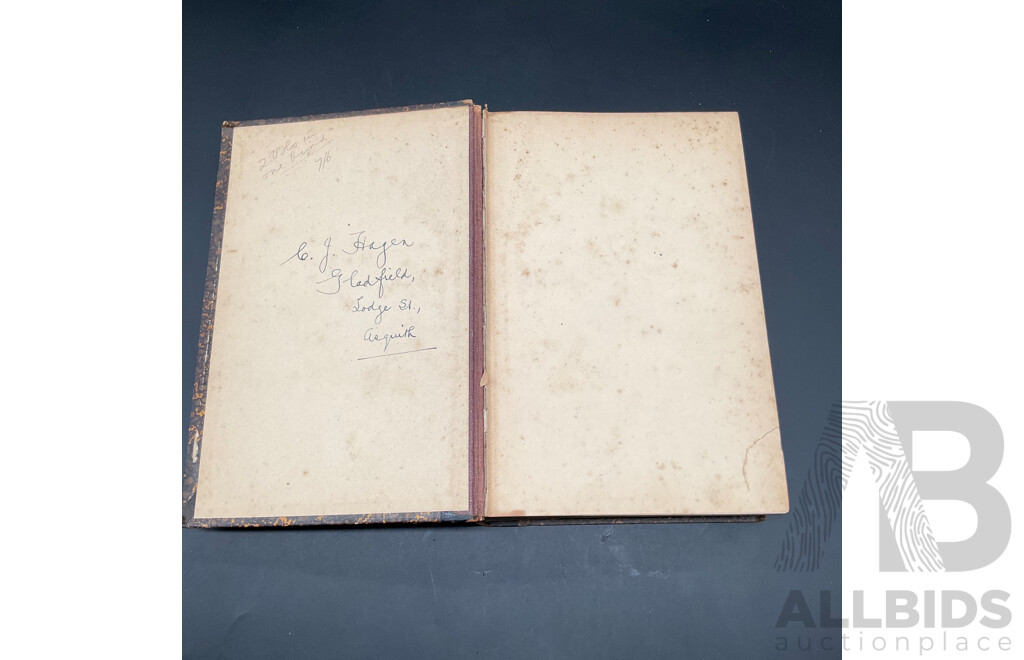 7/6
C. J. Hagen
Gladfield,
Lodge St.,
Asquith
AB
ALLBIDS
auctionplace